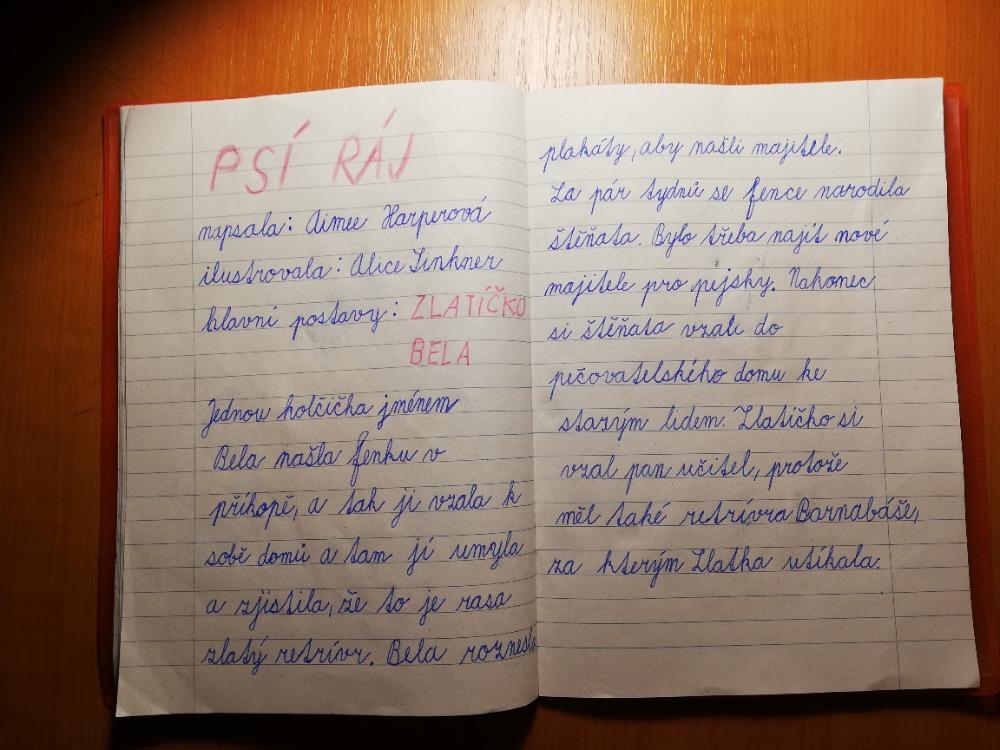 PSÍ RÁJ
napsala: Aimee Harperová
ilustrovala: Alice Linkner
hlavní postavy: ZLATÍČKO
BELA
Jednou holčička jménem
Bela našla fenku v
příkopě, a tak ji vzala k
sobě domů a tam jí umyla
a zjistila, že to je rasa
zlatý retrívr. Bela roznesla
plakáty, aby našli majitele.
Za pár tydnů se fence narodila
štěňata. Bylo třeba najít nové
majitele pro pejsky. Nakonec
si štěňata vzali do
pečovatelského domu ke
starým lidem. Zlatíčko si
vzal pan učitel, protože
měl také retrívra Barnabáše,
za kterým Zlatka utíkala.